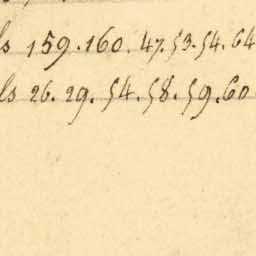 ls 159.160.47.53.54.64
ls 26.29.54.58.59.60